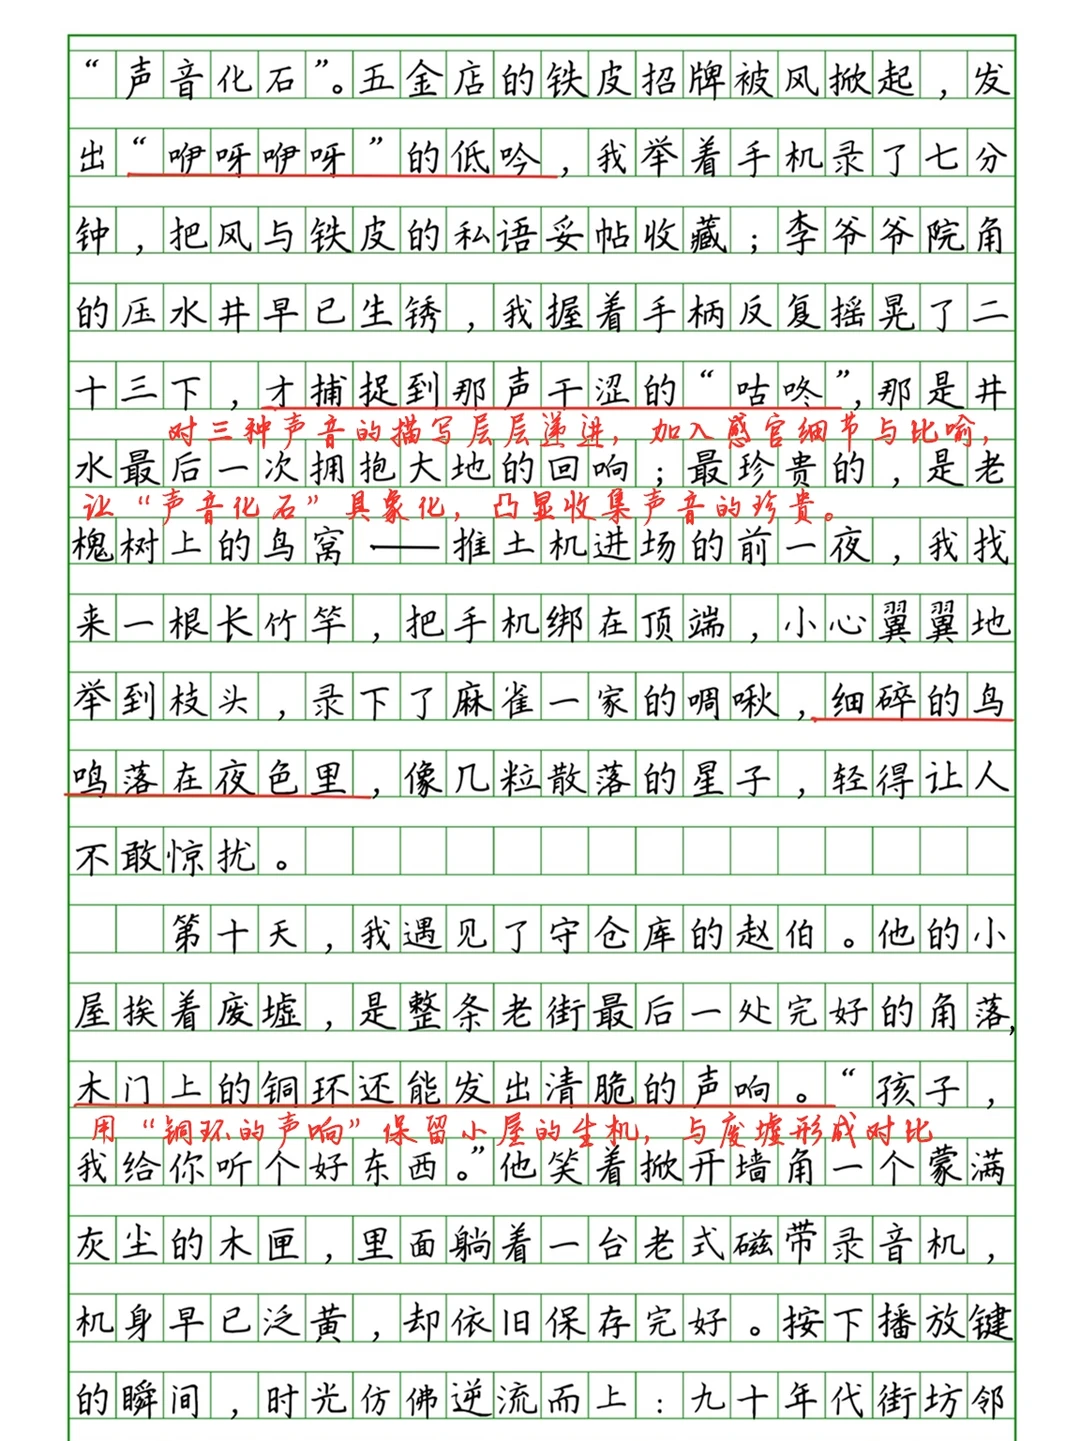 “声音化石”。五金店的铁皮招牌被风掀起，发
出“咿呀咿呀”的低吟，我举着手机录了七分
钟，把风与铁皮的私语妥帖收藏；李爷爷院角
的压水井早已生锈，我握着手柄反复摇晃了二
十三下，才捕捉到那声干涩的“咕咚”，那是井
对三种声音的描写层层递进，加入感官细节与比喻，
水最后一次拥抱大地的回响；最珍贵的，是老
让“声音化石”具象化，凸显收集声音的珍贵。
槐树上的鸟窝——推土机进场的前一夜，我找
来一根长竹竿，把手机绑在顶端，小心翼翼地
举到枝头，录下了麻雀一家的啁啾，细碎的鸟
鸣落在夜色里，像几粒散落的星子，轻得让人
不敢惊扰。
第十天，我遇见了守仓库的赵伯。他的小
屋挨着废墟，是整条老街最后一处完好的角落，
木门上的铜环还能发出清脆的声响。“孩子，
用“铜环的声响”保留小屋的生机，与废墟形成对比
我给你听个好东西。”他笑着掀开墙角一个蒙满
灰尘的木匣，里面躺着一台老式磁带录音机，
机身早已泛黄，却依旧保存完好。按下播放键
的瞬间，时光仿佛逆流而上：九十年代街坊邻